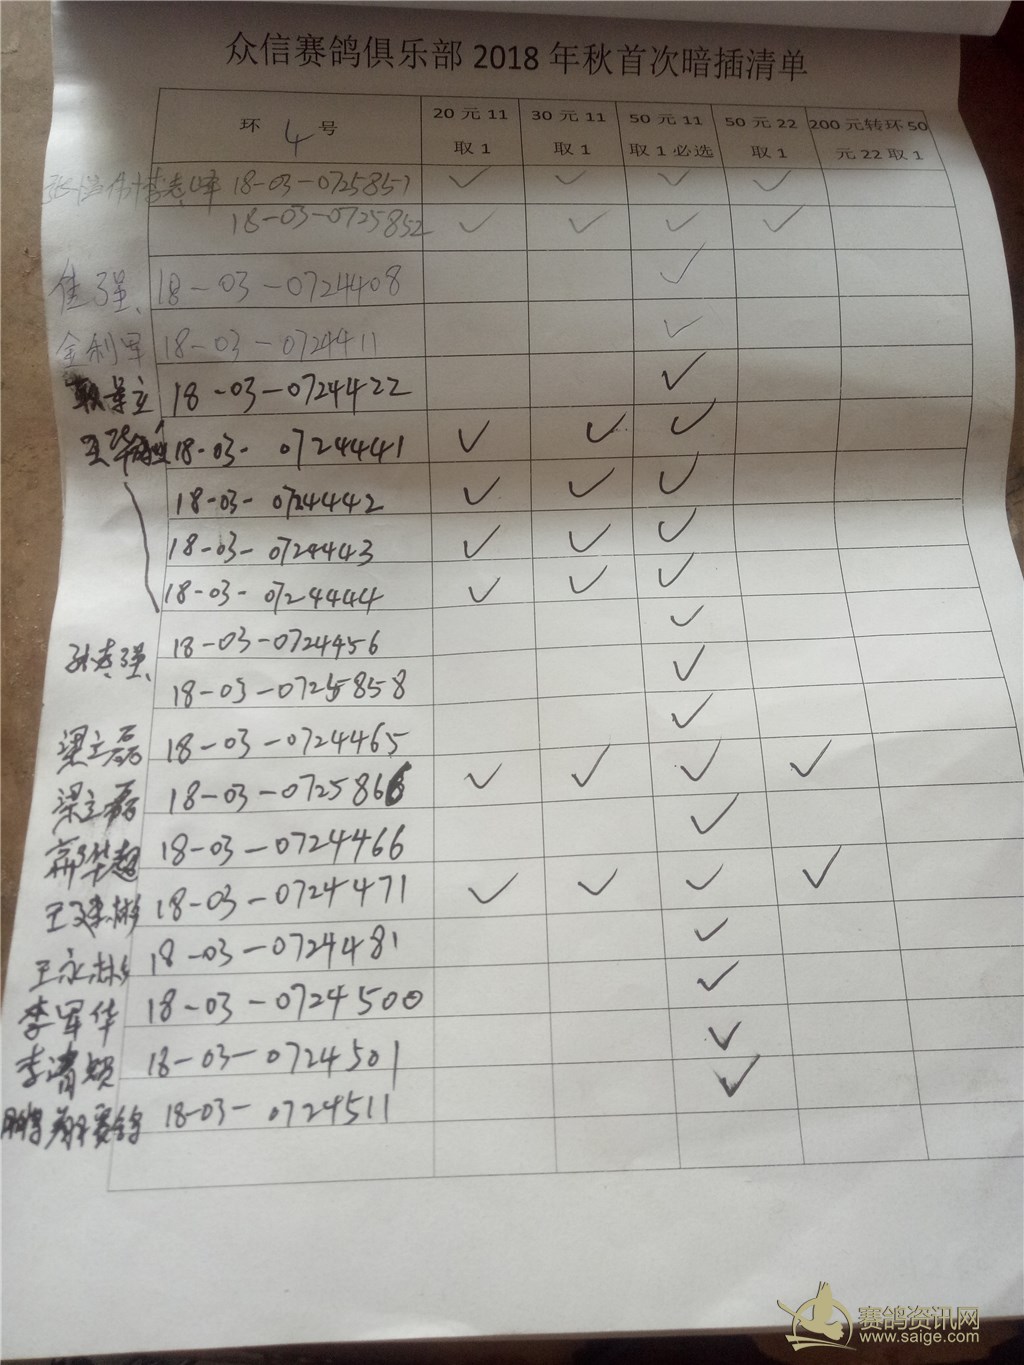 众信赛鸽俱乐部 2018 年秋首次暗插清单
环 4 号
20 元 11 取 1
30 元 11 取 1
50 元 11 取 1 必选
50 元 22 取 1
200 元转环 50 元 22 取 1
李志峰 18-03-0725851 ✓ ✓ ✓ ✓
18-03-0725852 ✓ ✓ ✓ ✓
佳强、 18-03-0724408 ✓
金利军 18-03-0724411 ✓
景立 18-03-0724422 ✓
王华 18-03-0724441 ✓ ✓ ✓
18-03-0724442 ✓ ✓ ✓
18-03-0724443 ✓ ✓ ✓
18-03-0724444 ✓ ✓ ✓
孙志强、 18-03-0724456 ✓
18-03-0725858 ✓
梁立磊 18-03-0724465 ✓
梁立磊 18-03-0725866 ✓ ✓ ✓ ✓
华超 18-03-0724466 ✓
王建彬 18-03-0724471 ✓ ✓ ✓ ✓
王永彬 18-03-0724481 ✓
李军华 18-03-0724500 ✓
李清 18-03-0724501 ✓
鹏翔赛鸽 18-03-0724511 ✓
赛鸽资讯网
www.saige.com